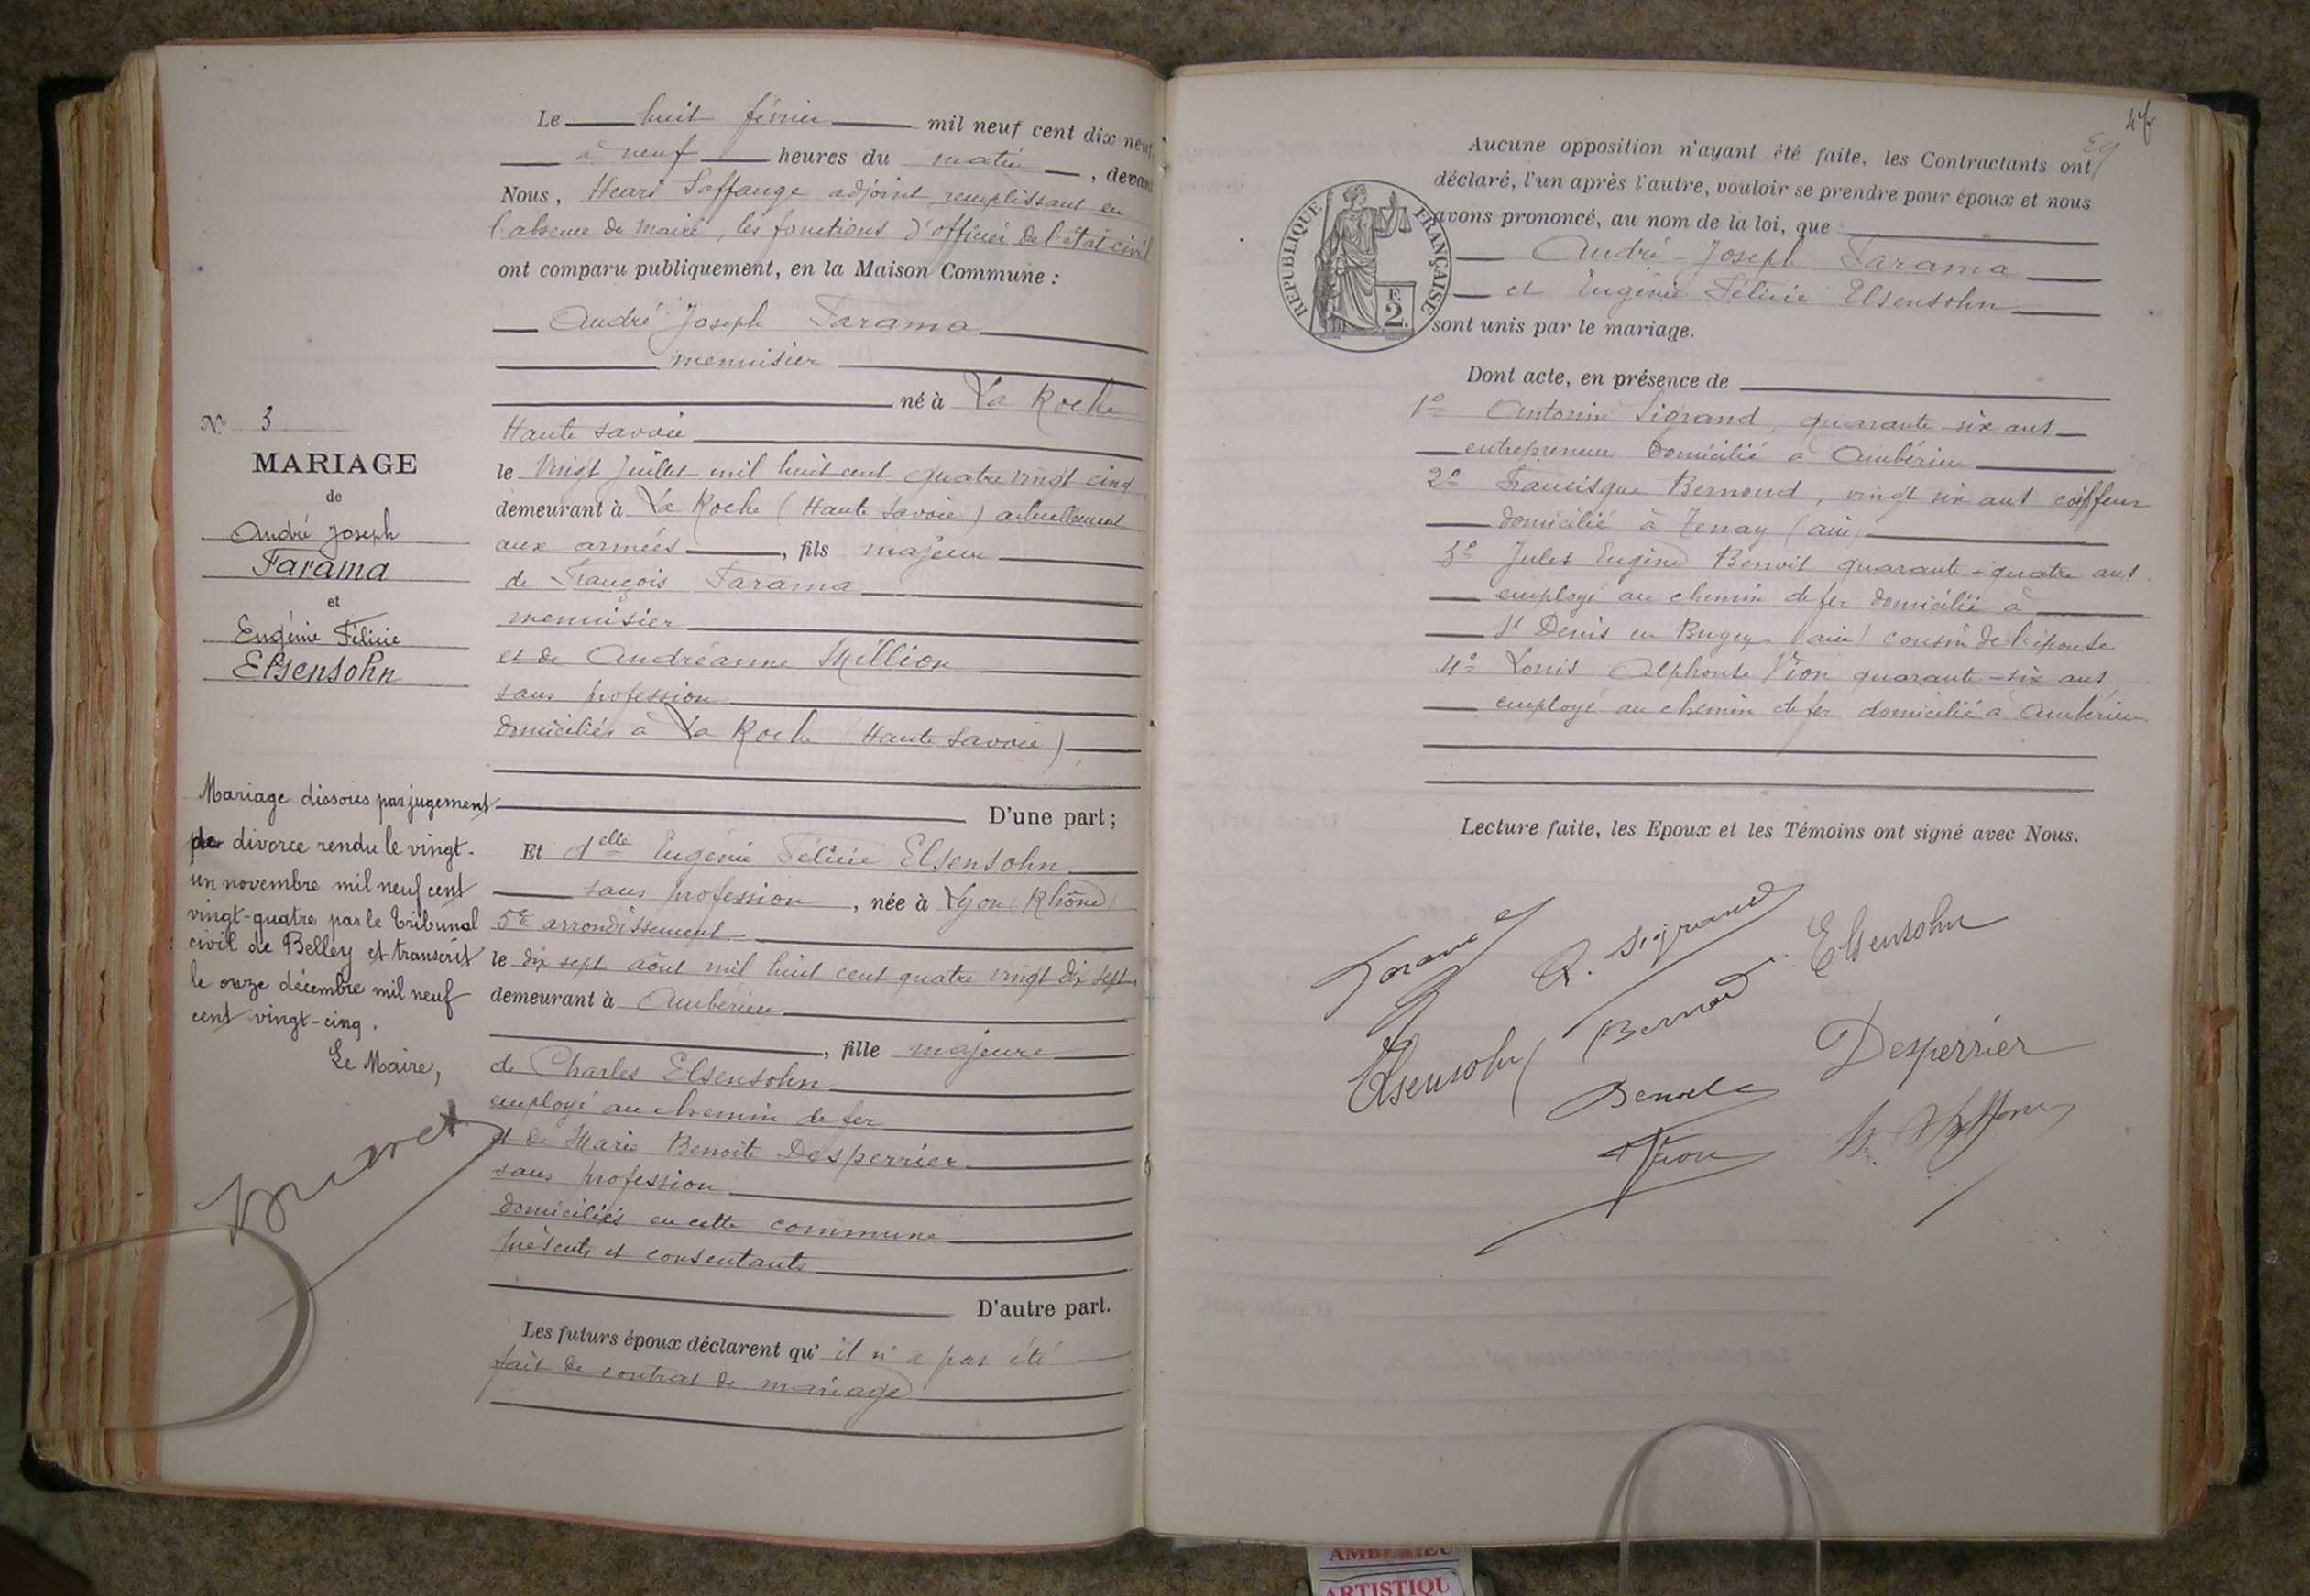 Le huit février mil neuf cent dix neuf,
à neuf heures du matin, devant
Nous, Henri Laffange adjoint, remplissant en
l'absence de maire, les fonctions d'officier de l'état civil
ont comparu publiquement, en la Maison Commune :
André Joseph Farama
menuisier
né à La Roche
Haute Savoie
le vingt Juillet mil huit cent quatre vingt cinq
demeurant à La Roche (Haute Savoie) actuellement
aux armées, fils majeur
de François Farama
menuisier
et de Andréanne Million
sans profession
domiciliés à La Roche (Haute Savoie)
D'une part ;
Et delle Eugénie Félicie Elsensohn
sans profession, née à Lyon (Rhône)
5e arrondissement
le dix sept août mil huit cent quatre vingt dix sept,
demeurant à Ambérieu
, fille majeure
de Charles Elsensohn
employé au chemin de fer
et de Marie Benoite Desperrier
sans profession
domiciliés en cette commune
présents et consentants
D'autre part.
Les futurs époux déclarent qu' il n'a pas été
fait de contrat de mariage
No 3
MARIAGE
de
André Joseph
Farama
et
Eugénie Félicie
Elsensohn
Mariage dissous par jugement
de divorce rendu le vingt-
un novembre mil neuf cent
vingt-quatre par le Tribunal
civil de Belley et transcrit
le onze décembre mil neuf
cent vingt-cinq.
Le Maire,
Aucune opposition n'ayant été faite, les Contractants ont
déclaré, l'un après l'autre, vouloir se prendre pour époux et nous
avons prononcé, au nom de la loi, que
André-Joseph Farama
et Eugénie Félicie Elsensohn
sont unis par le mariage.
RÉPUBLIQUE FRANÇAISE
F.
2.
Dont acte, en présence de
1° Antonin Sigrand, quarante-six ans
entrepreneur domicilié à Ambérieu
2° Francisque Bernoud, vingt six ans coiffeur
domicilié à Tenay (ain)
3° Jules Eugène Benoit quarante-quatre ans
employé au chemin de fer domicilié à
St Denis en Bugey (ain) cousin de l'épouse
4° Louis Alphonse Vion quarante-six ans,
employé au chemin de fer domicilié à Ambérieu
Lecture faite, les Epoux et les Témoins ont signé avec Nous.
A. Sigrand
Elsensohn
Bernoud
Elsensohn
Desperrier
Benoit
Vion
AMBERIEU
ARTISTIQU